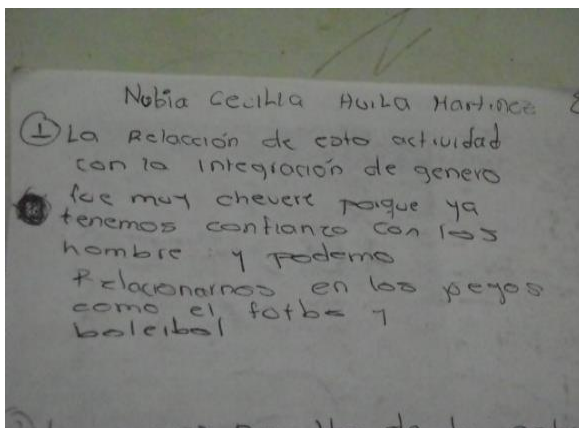 Nubia Cecilia Avila Martinez
① La Relacción de esto actividad
con la integración de genero
fue muy chevere porque ya
tenemos confianza con los
hombre y podemo
Relacionarnos en los
como el fotbo y
boleibol